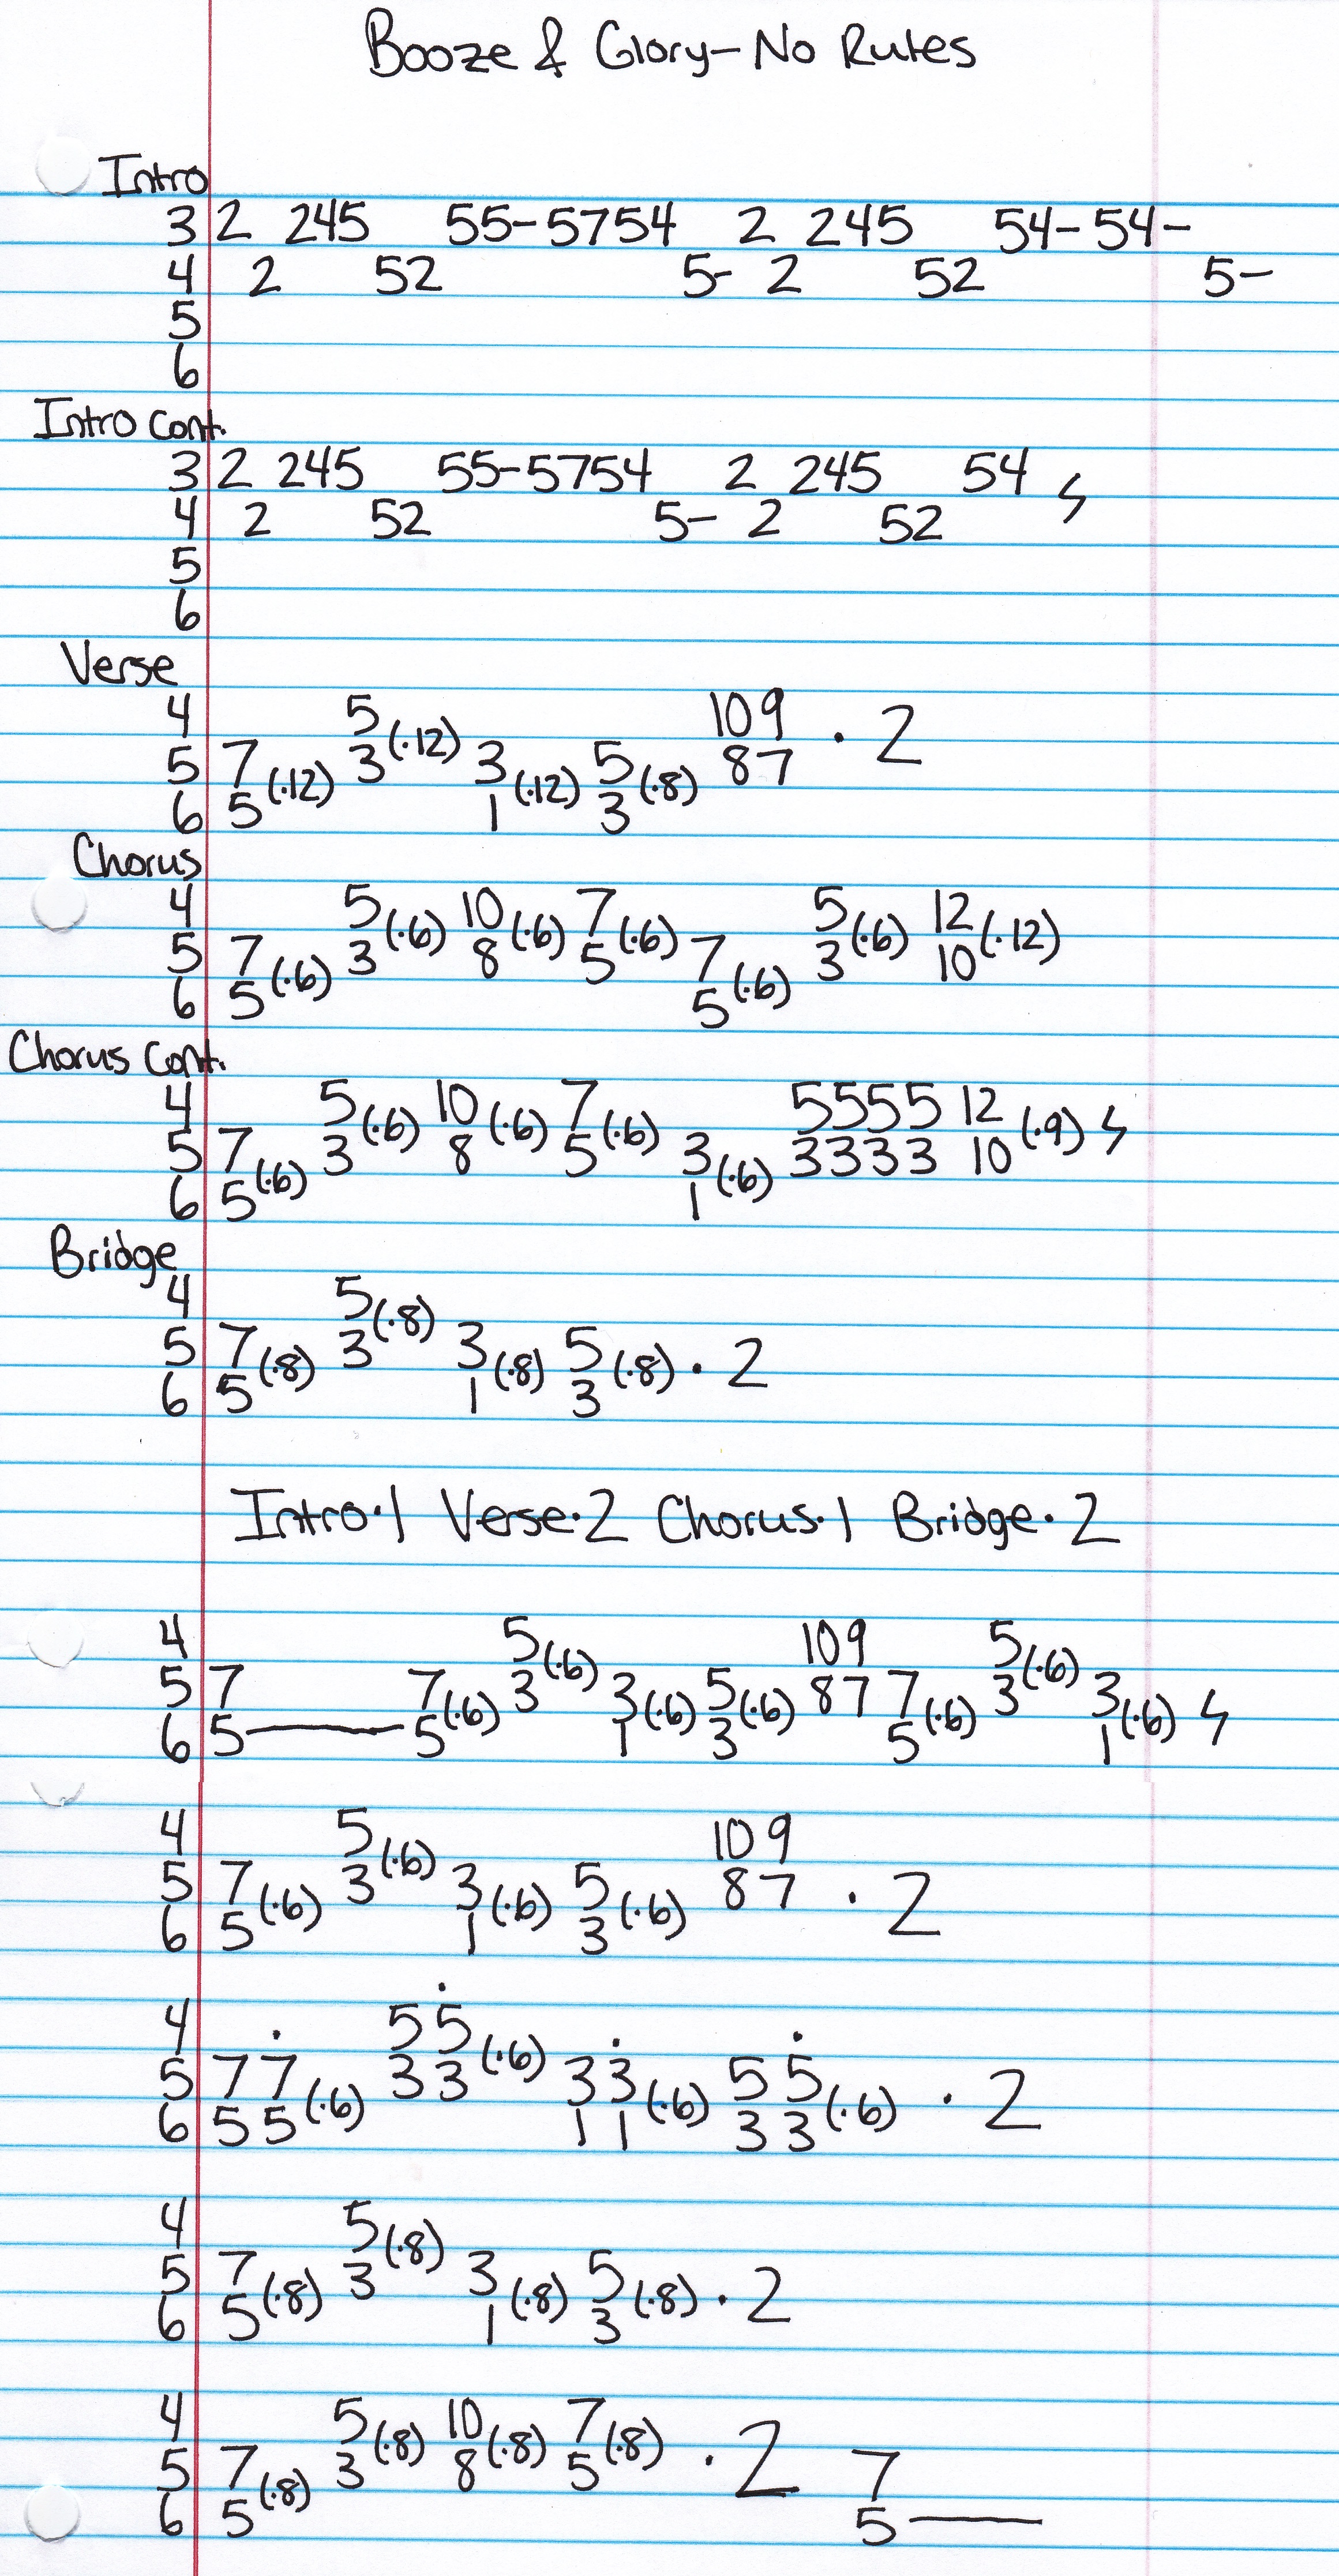 Booze & Glory-No Rules
Intro
3 2 245 55-5754 2 245 54-54-
4 2 52 5- 2 52 5-
5
6
Intro Cont.
3 2 245 55-5754 2 245 54 ϟ
4 2 52 5- 2 52
5
6
Verse
4 5 109
5 7 3(·12) 3 5 87 · 2
6 5(·12) 1(·12) 3(·8)
Chorus
4 5 10 7 5 12
5 7 3(·6) 8(·6) 5(·6) 7 3(·6) 10(·12)
6 5(·6) 5(·6)
Chorus Cont.
4 5 10 7 5555 12
5 7 3(·6) 8(·6) 5(·6) 3 3333 10(·9) ϟ
6 5(·6) 1(·6)
Bridge
4 5
5 7 3(·8) 3 5
6 5(·8) 1(·8) 3(·8) · 2
Intro·1 Verse·2 Chorus·1 Bridge·2
4 5 109 5
5 7 7 3(·6) 3 5 87 7 3(·6) 3
6 5— 5(·6) 1(·6) 3(·6) 5(·6) 1(·6) ϟ
4 5 109
5 7 3(·6) 3 5 87 · 2
6 5(·6) 1(·6) 3(·6)
4 55̇
5 77̇ 33(·6) 33̇ 55̇
6 55(·6) 11(·6) 33(·6) · 2
4 5
5 7 3(·8) 3 5
6 5(·8) 1(·8) 3(·8) · 2
4 5 10 7
5 7 3(·8) 8(·8) 5(·8) · 2 7
6 5(·8) 5—